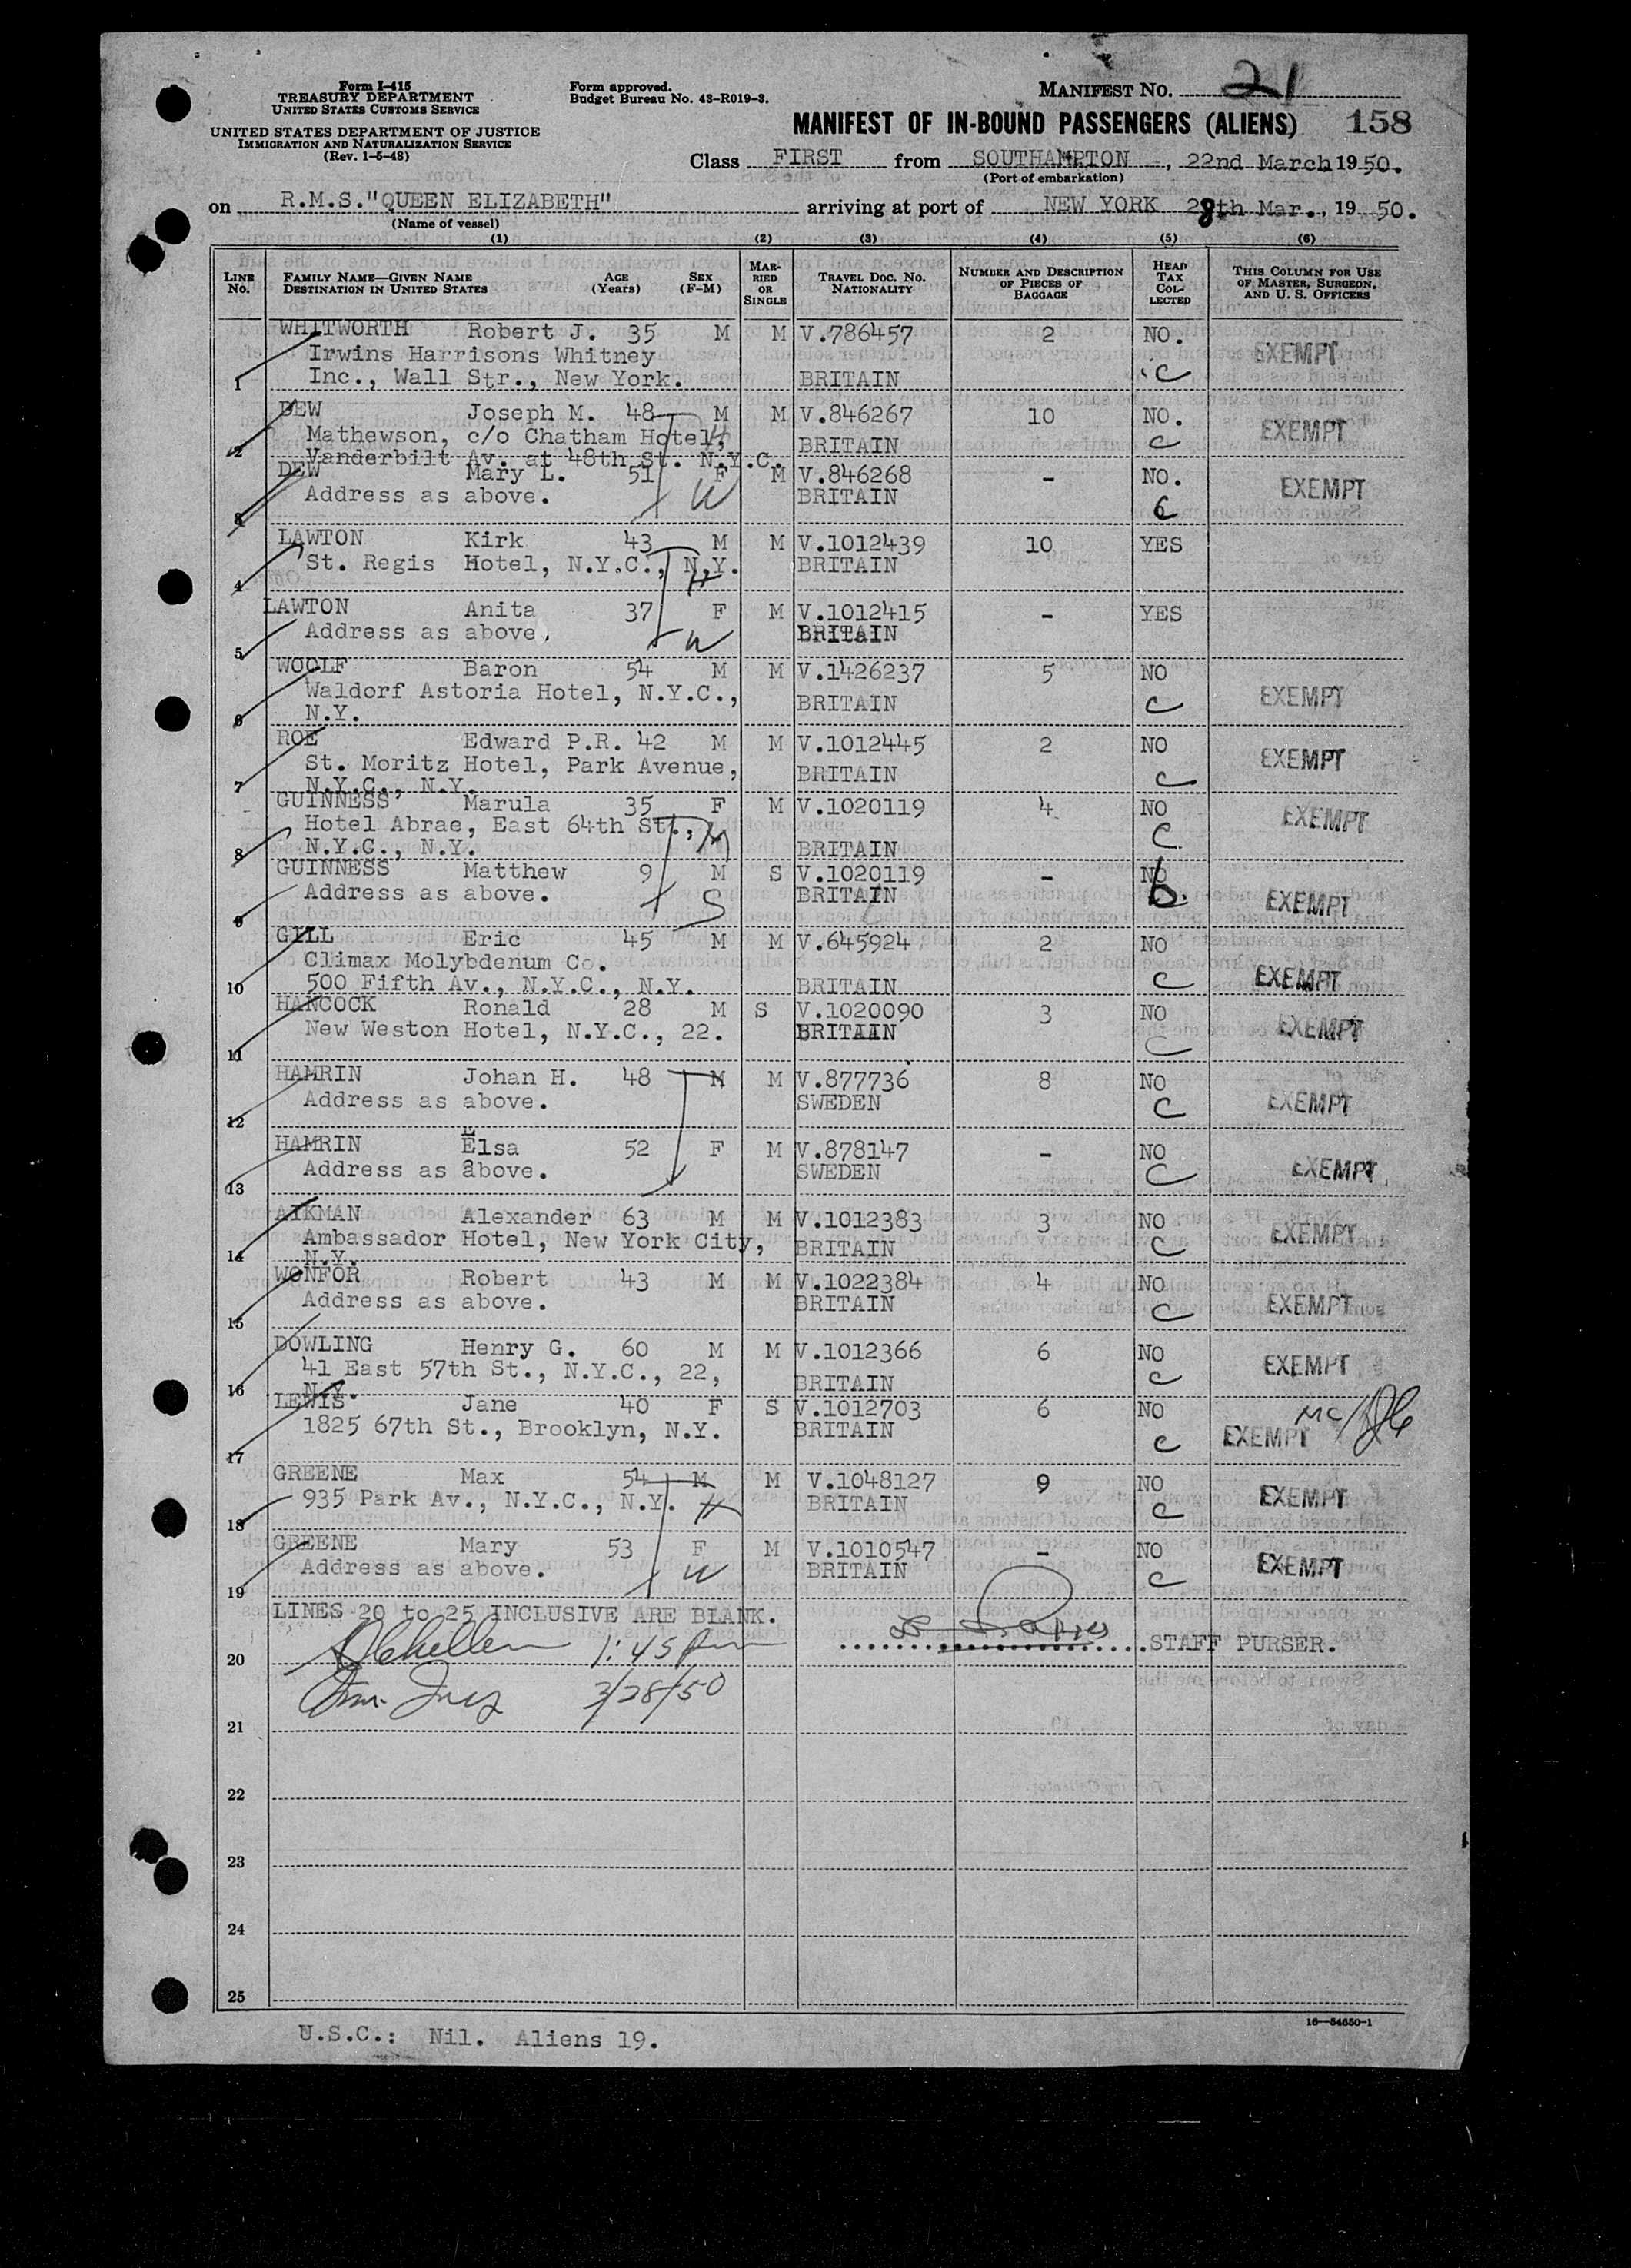 Form I-415
TREASURY DEPARTMENT
UNITED STATES CUSTOMS SERVICE
UNITED STATES DEPARTMENT OF JUSTICE
IMMIGRATION AND NATURALIZATION SERVICE
(Rev. 1-5-48)
Form approved.
Budget Bureau No. 43-R019-3.
MANIFEST NO. 21
MANIFEST OF IN-BOUND PASSENGERS (ALIENS) 158
Class FIRST from SOUTHAMPTON, 22nd March 1950.
(Port of embarkation)
on R.M.S."QUEEN ELIZABETH" arriving at port of NEW YORK 28th Mar., 1950.
(Name of vessel)
(1) (2) (3) (4) (5) (6)
LINE NO. FAMILY NAME—GIVEN NAME DESTINATION IN UNITED STATES AGE (Years) SEX (F-M) MARRIED OR SINGLE TRAVEL DOC. NO. NATIONALITY NUMBER AND DESCRIPTION OF PIECES OF BAGGAGE HEAD TAX COLLECTED THIS COLUMN FOR USE OF MASTER, SURGEON, AND U. S. OFFICERS
WHITWORTH Robert J. 35 M M V.786457 2 NO. EXEMPT
Irwins Harrisons Whitney
1 Inc., Wall Str., New York. BRITAIN C
DEW Joseph M. 48 M M V.846267 10 NO. EXEMPT
Mathewson, c/o Chatham Hotel, H BRITAIN C
2 Vanderbilt Av. at 48th St. N.Y.C.
DEW Mary L. 51 F M V.846268 - NO. EXEMPT
Address as above. W BRITAIN
3 C
LAWTON Kirk 43 M M V.1012439 10 YES
St. Regis Hotel, N.Y.C., N.Y. BRITAIN
4 H
LAWTON Anita 37 F M V.1012415 - YES
Address as above, W BRITAIN
5
WOOLF Baron 54 M M V.1426237 5 NO
Waldorf Astoria Hotel, N.Y.C., BRITAIN C EXEMPT
6 N.Y.
ROE Edward P.R. 42 M M V.1012445 2 NO
St. Moritz Hotel, Park Avenue, BRITAIN C EXEMPT
7 N.Y.C., N.Y.
GUINNESS Marula 35 F M V.1020119 4 NO EXEMPT
Hotel Abrae, East 64th St., M C
8 N.Y.C., N.Y. BRITAIN
GUINNESS Matthew 9 M S V.1020119 - NO
Address as above. S BRITAIN b. EXEMPT
9
GILL Eric 45 M M V.645924 2 NO
Climax Molybdenum Co.
10 500 Fifth Av., N.Y.C., N.Y. BRITAIN C EXEMPT
HANCOCK Ronald 28 M S V.1020090 3 NO
New Weston Hotel, N.Y.C., 22. BRITAIN C EXEMPT
11
HAMRIN Johan H. 48 M M V.877736 8 NO
Address as above. SWEDEN C EXEMPT
12
HAMRIN Elsa 52 F M V.878147 - NO
Address as above. SWEDEN C EXEMPT
13
AIKMAN Alexander 63 M M V.1012383 3 NO
Ambassador Hotel, New York City, BRITAIN C EXEMPT
14 N.Y.
WONFOR Robert 43 M M V.1022384 4 NO
Address as above. BRITAIN C EXEMPT
15
DOWLING Henry G. 60 M M V.1012366 6 NO
41 East 57th St., N.Y.C., 22, BRITAIN C EXEMPT
16 N.Y.
LEWIS Jane 40 F S V.1012703 6 NO
1825 67th St., Brooklyn, N.Y. BRITAIN C EXEMPT
17
GREENE Max 54 M M V.1048127 9 NO
935 Park Av., N.Y.C., N.Y. H BRITAIN C EXEMPT
18
GREENE Mary 53 F M V.1010547 - NO
Address as above. W BRITAIN C EXEMPT
19
LINES 20 to 25 INCLUSIVE ARE BLANK.
1:45 pm STAFF PURSER.
20
3/28/50
21
22
23
24
25
16—54650-1
U.S.C.: Nil. Aliens 19.